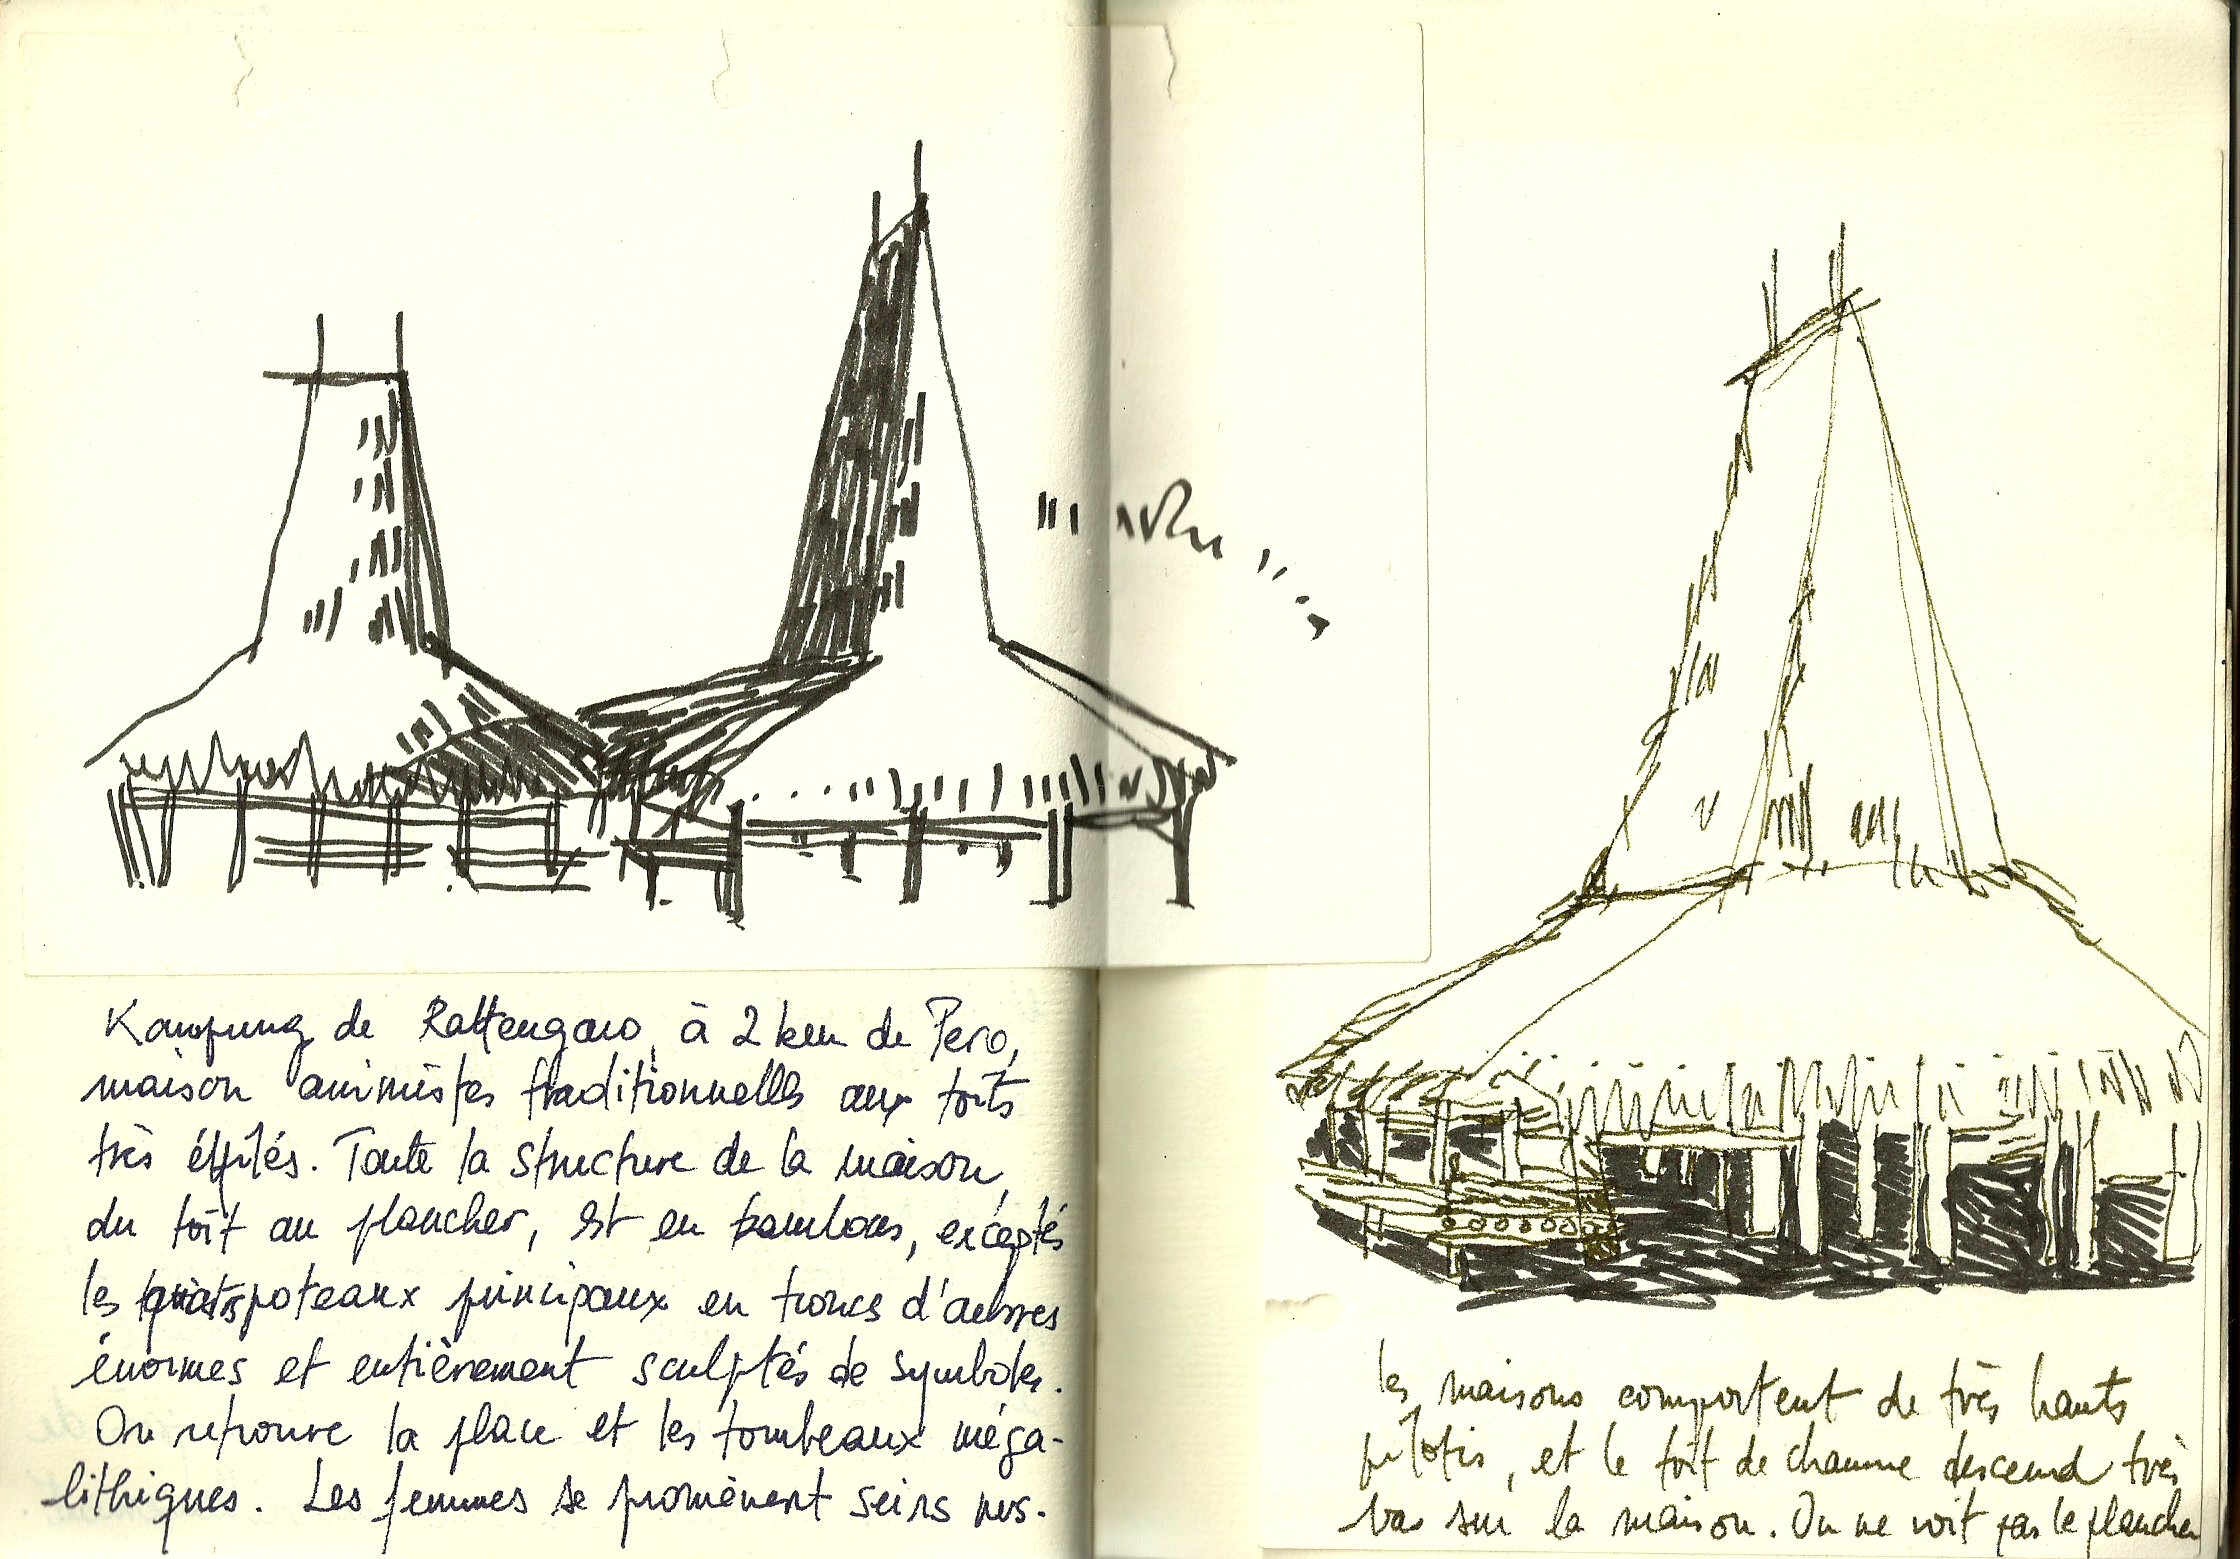 Kampung de Rattengaro, à 2 km de Pero,
maison animistes traditionnelles aux toits
très éffilés. Toute la structure de la maison,
du toit au plancher, est en bambous, exceptés
les poteaux principaux en troncs d'arbres
énormes et entièrement sculptés de symboles.
On retrouve la place et les tombeaux méga-
lithiques. Les femmes se promènent seins nus.
les maisons comportent de très hauts
pilotis, et le toit de chaume descend très
bas sur la maison. On ne voit pas le plancher